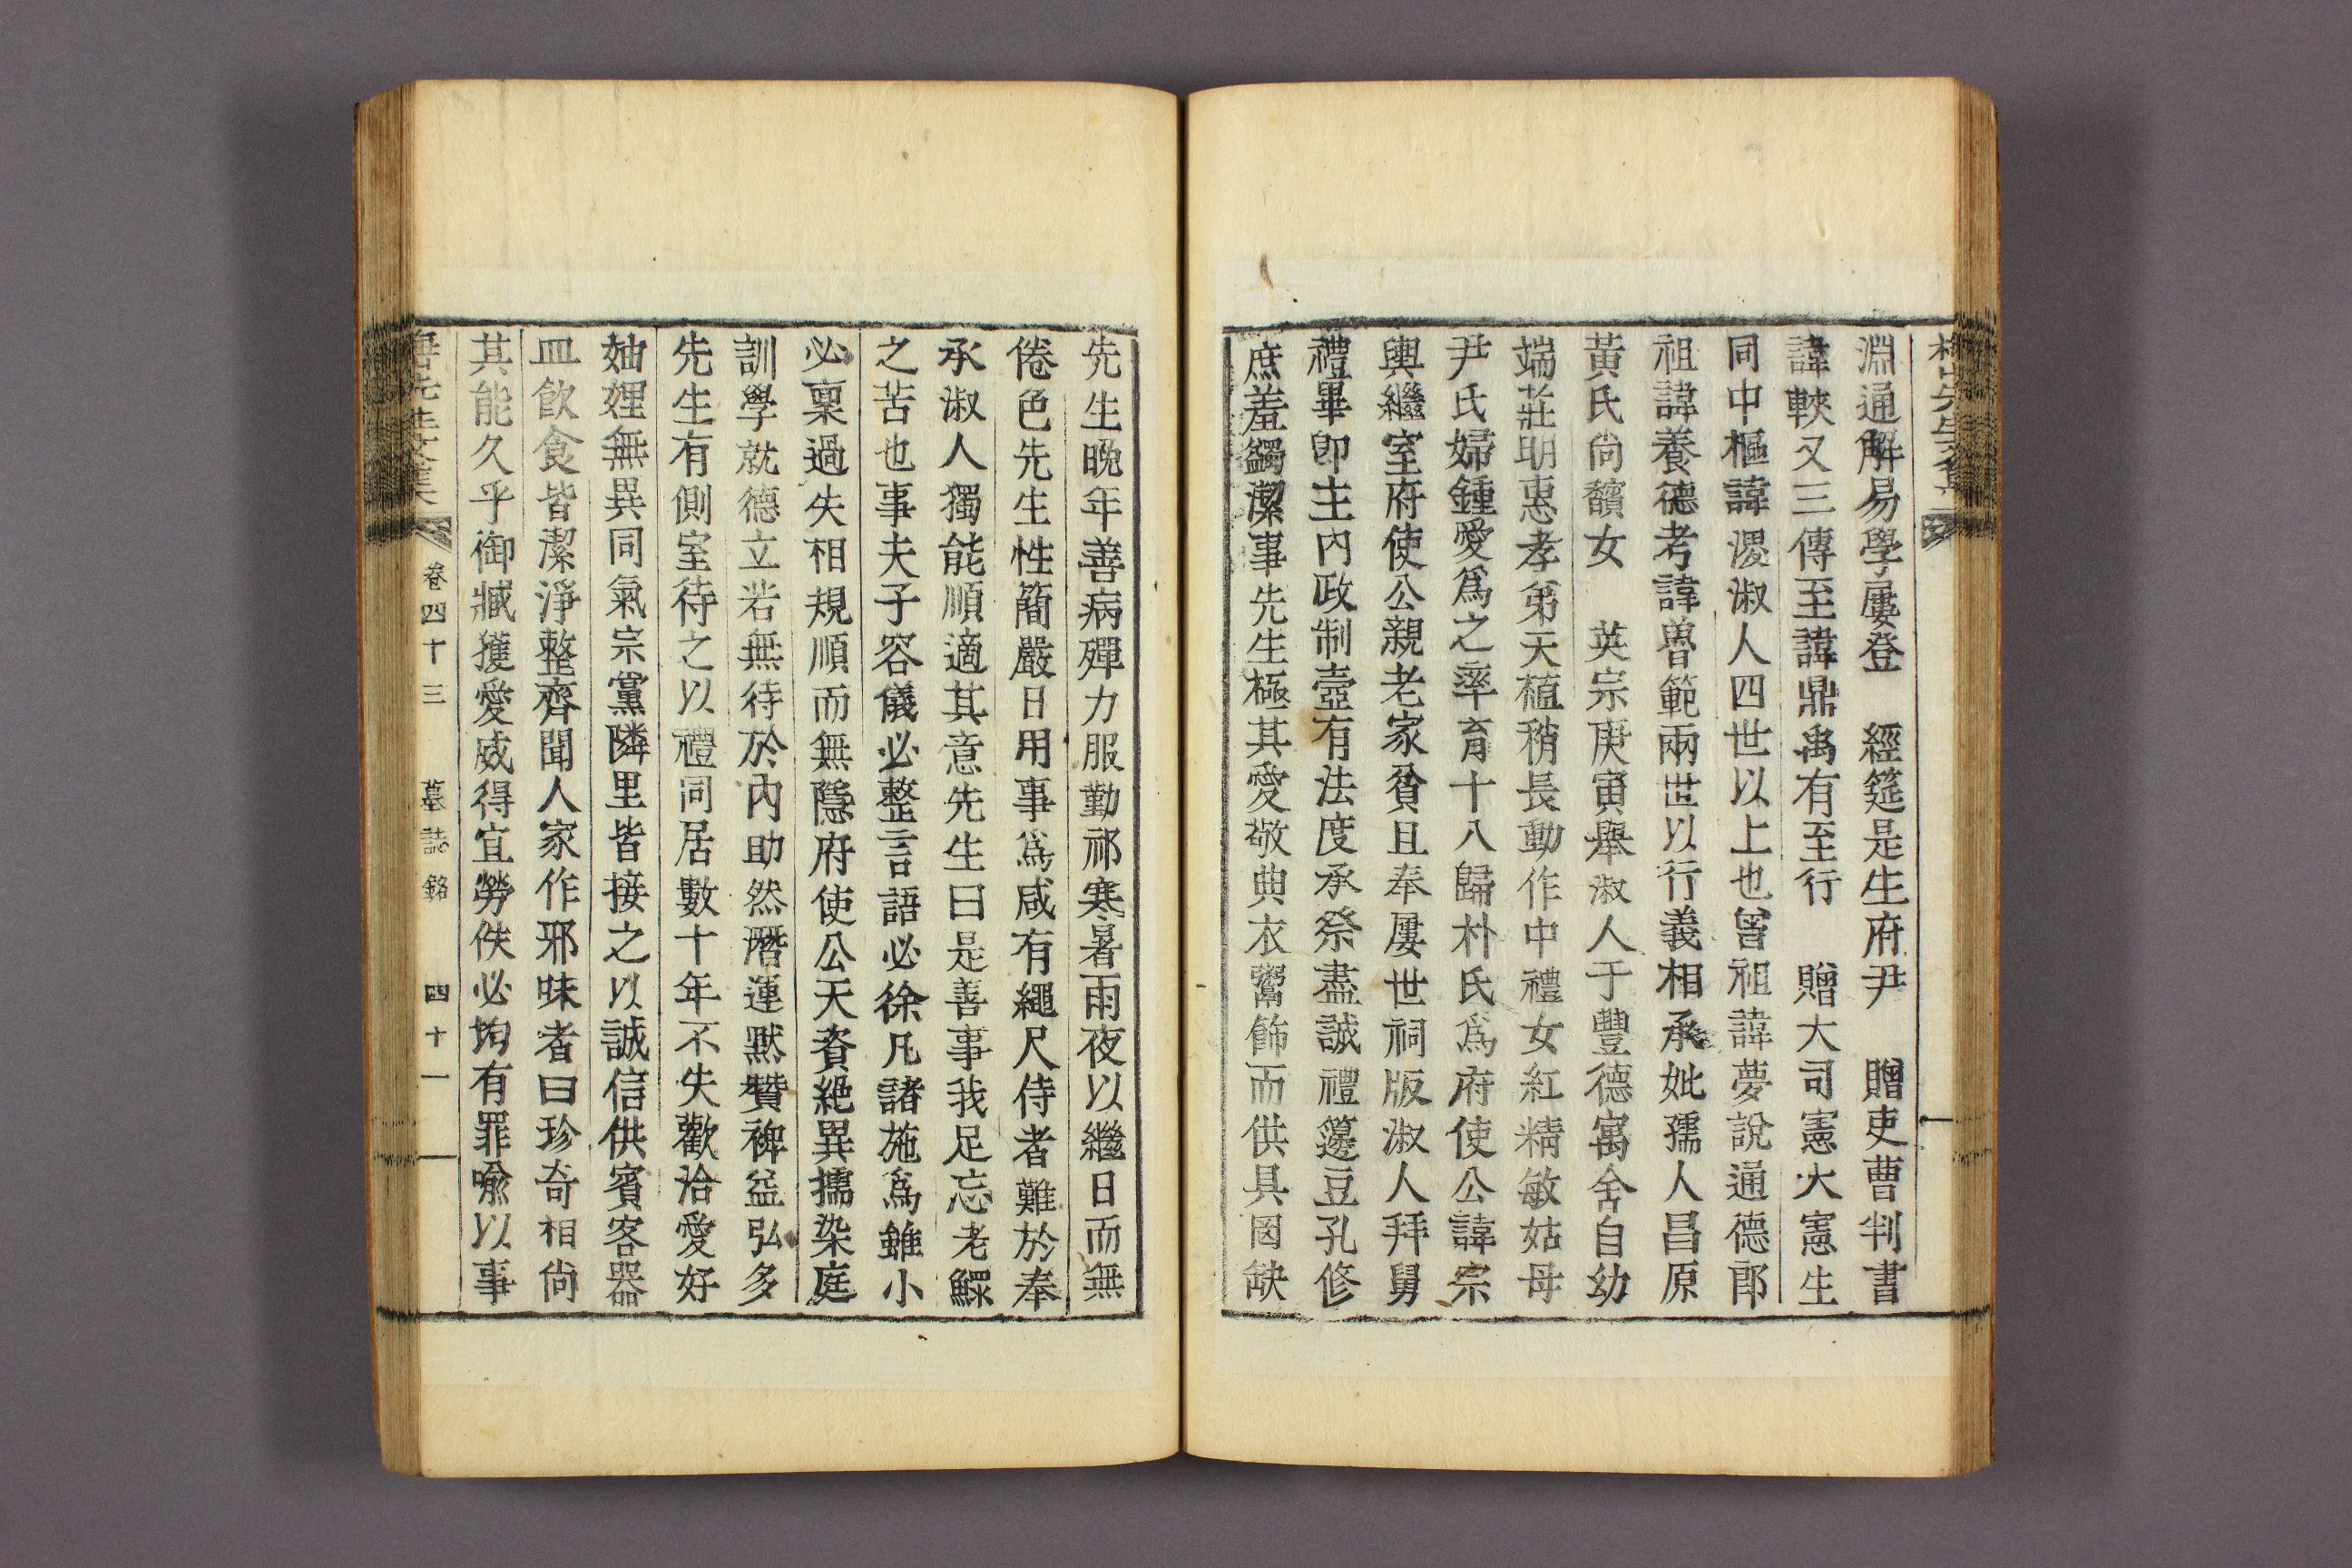 淵通解易學屢登　經筵是生府尹　贈吏曹判書
諱輳又三傳至諱鼎禹有至行　贈大司憲大憲生
同中樞諱溭淑人四世以上也曾祖諱夢說通德郎
祖諱養德考諱曽範兩世以行義相承妣孺人昌原
黃氏尙馪女　英宗庚寅擧淑人于豐德寓舍自幼
端莊明惠孝弟天植稍長動作中禮女紅精敏姑母
尹氏婦鍾愛爲之率育十八歸朴氏爲府使公諱宗
輿繼室府使公親老家貧且奉屢世祠版淑人拜舅
禮畢卽主內政制壼有法度承祭盡誠禮籩豆孔修
庶羞蠲潔事先生極其愛敬典衣鬻飾而供具罔缺
先生晩年善病殫力服勤祁寒暑雨夜以繼日而無
倦色先生性簡嚴日用事爲咸有繩尺侍者難於奉
承淑人獨能順適其意先生曰是善事我足忘老鰥
之苦也事夫子容儀必整言語必徐凡諸施爲雖小
必稟過失相規順而無隱府使公天資絶異擩染庭
訓學就德立若無待於內助然潛運默贊裨益弘多
先生有側室待之以禮同居數十年不失歡洽愛好
妯娌無異同氣宗黨隣里皆接之以誠信供賓客器
皿飮食皆潔淨整齊聞人家作邪味者曰珍奇相尙
其能久乎御臧獲愛威得宜勞佚必均有罪喩以事
卷四十三　墓誌銘　四十一